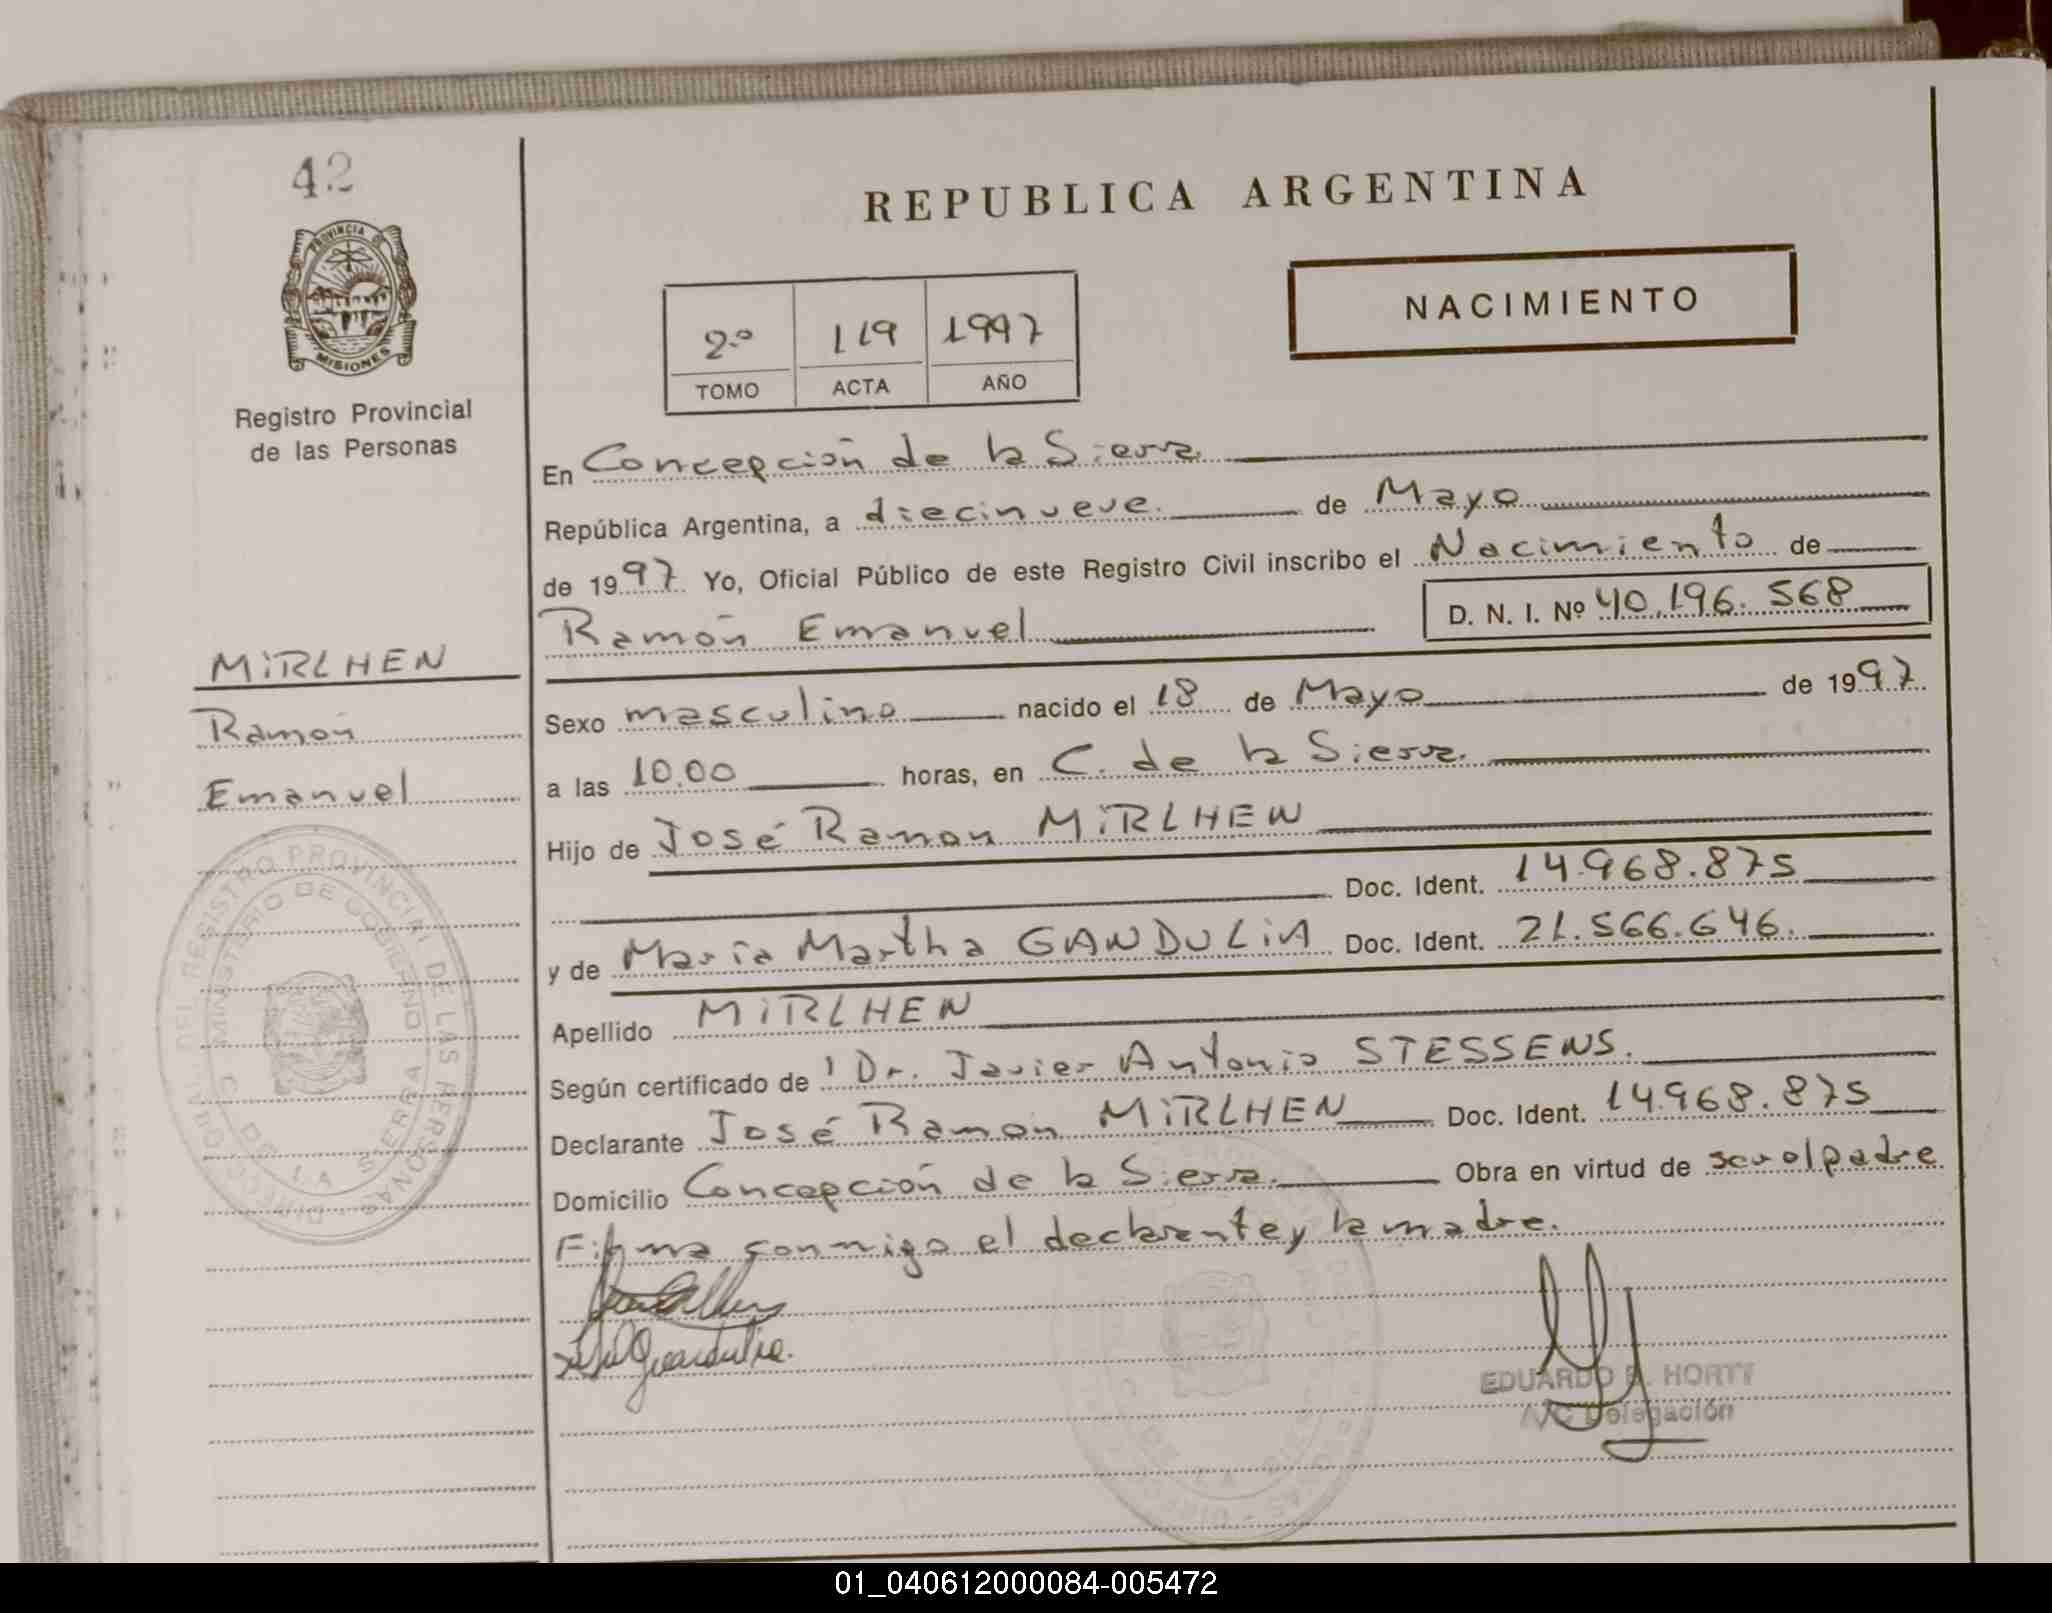 42
PROVINCIA DE
MISIONES
Registro Provincial
de las Personas
MiRLHEN
Ramón
Emanuel
DIRECCION GRAL. DEL REGISTRO PROVINCIAL DE LAS PERSONAS
MINISTERIO DE GOBIERNO
C. DE LA SIERRA
REPUBLICA ARGENTINA
NACIMIENTO
2º 119 1997
TOMO ACTA AÑO
En Concepción de la Sierra
República Argentina, a diecinueve de Mayo
de 1997 Yo, Oficial Público de este Registro Civil inscribo el Nacimiento de
Ramón Emanuel D. N. I. Nº 40.196.568
Sexo masculino nacido el 18 de Mayo de 1997
a las 10.00 horas, en C. de la Sierra
Hijo de José Ramon MiRLHEN
Doc. Ident. 14.968.875
y de María Martha GANDULiA Doc. Ident. 21.566.646.
Apellido MiRLHEN
Según certificado de Dr. Javier Antonio STESSENS.
Declarante José Ramon MiRLHEN Doc. Ident. 14.968.875
Domicilio Concepción de la Sierra. Obra en virtud de ser el padre
Firma conmigo el declarante y la madre.
EDUARDO HORTT
A/C Delegación
01_040612000084-005472